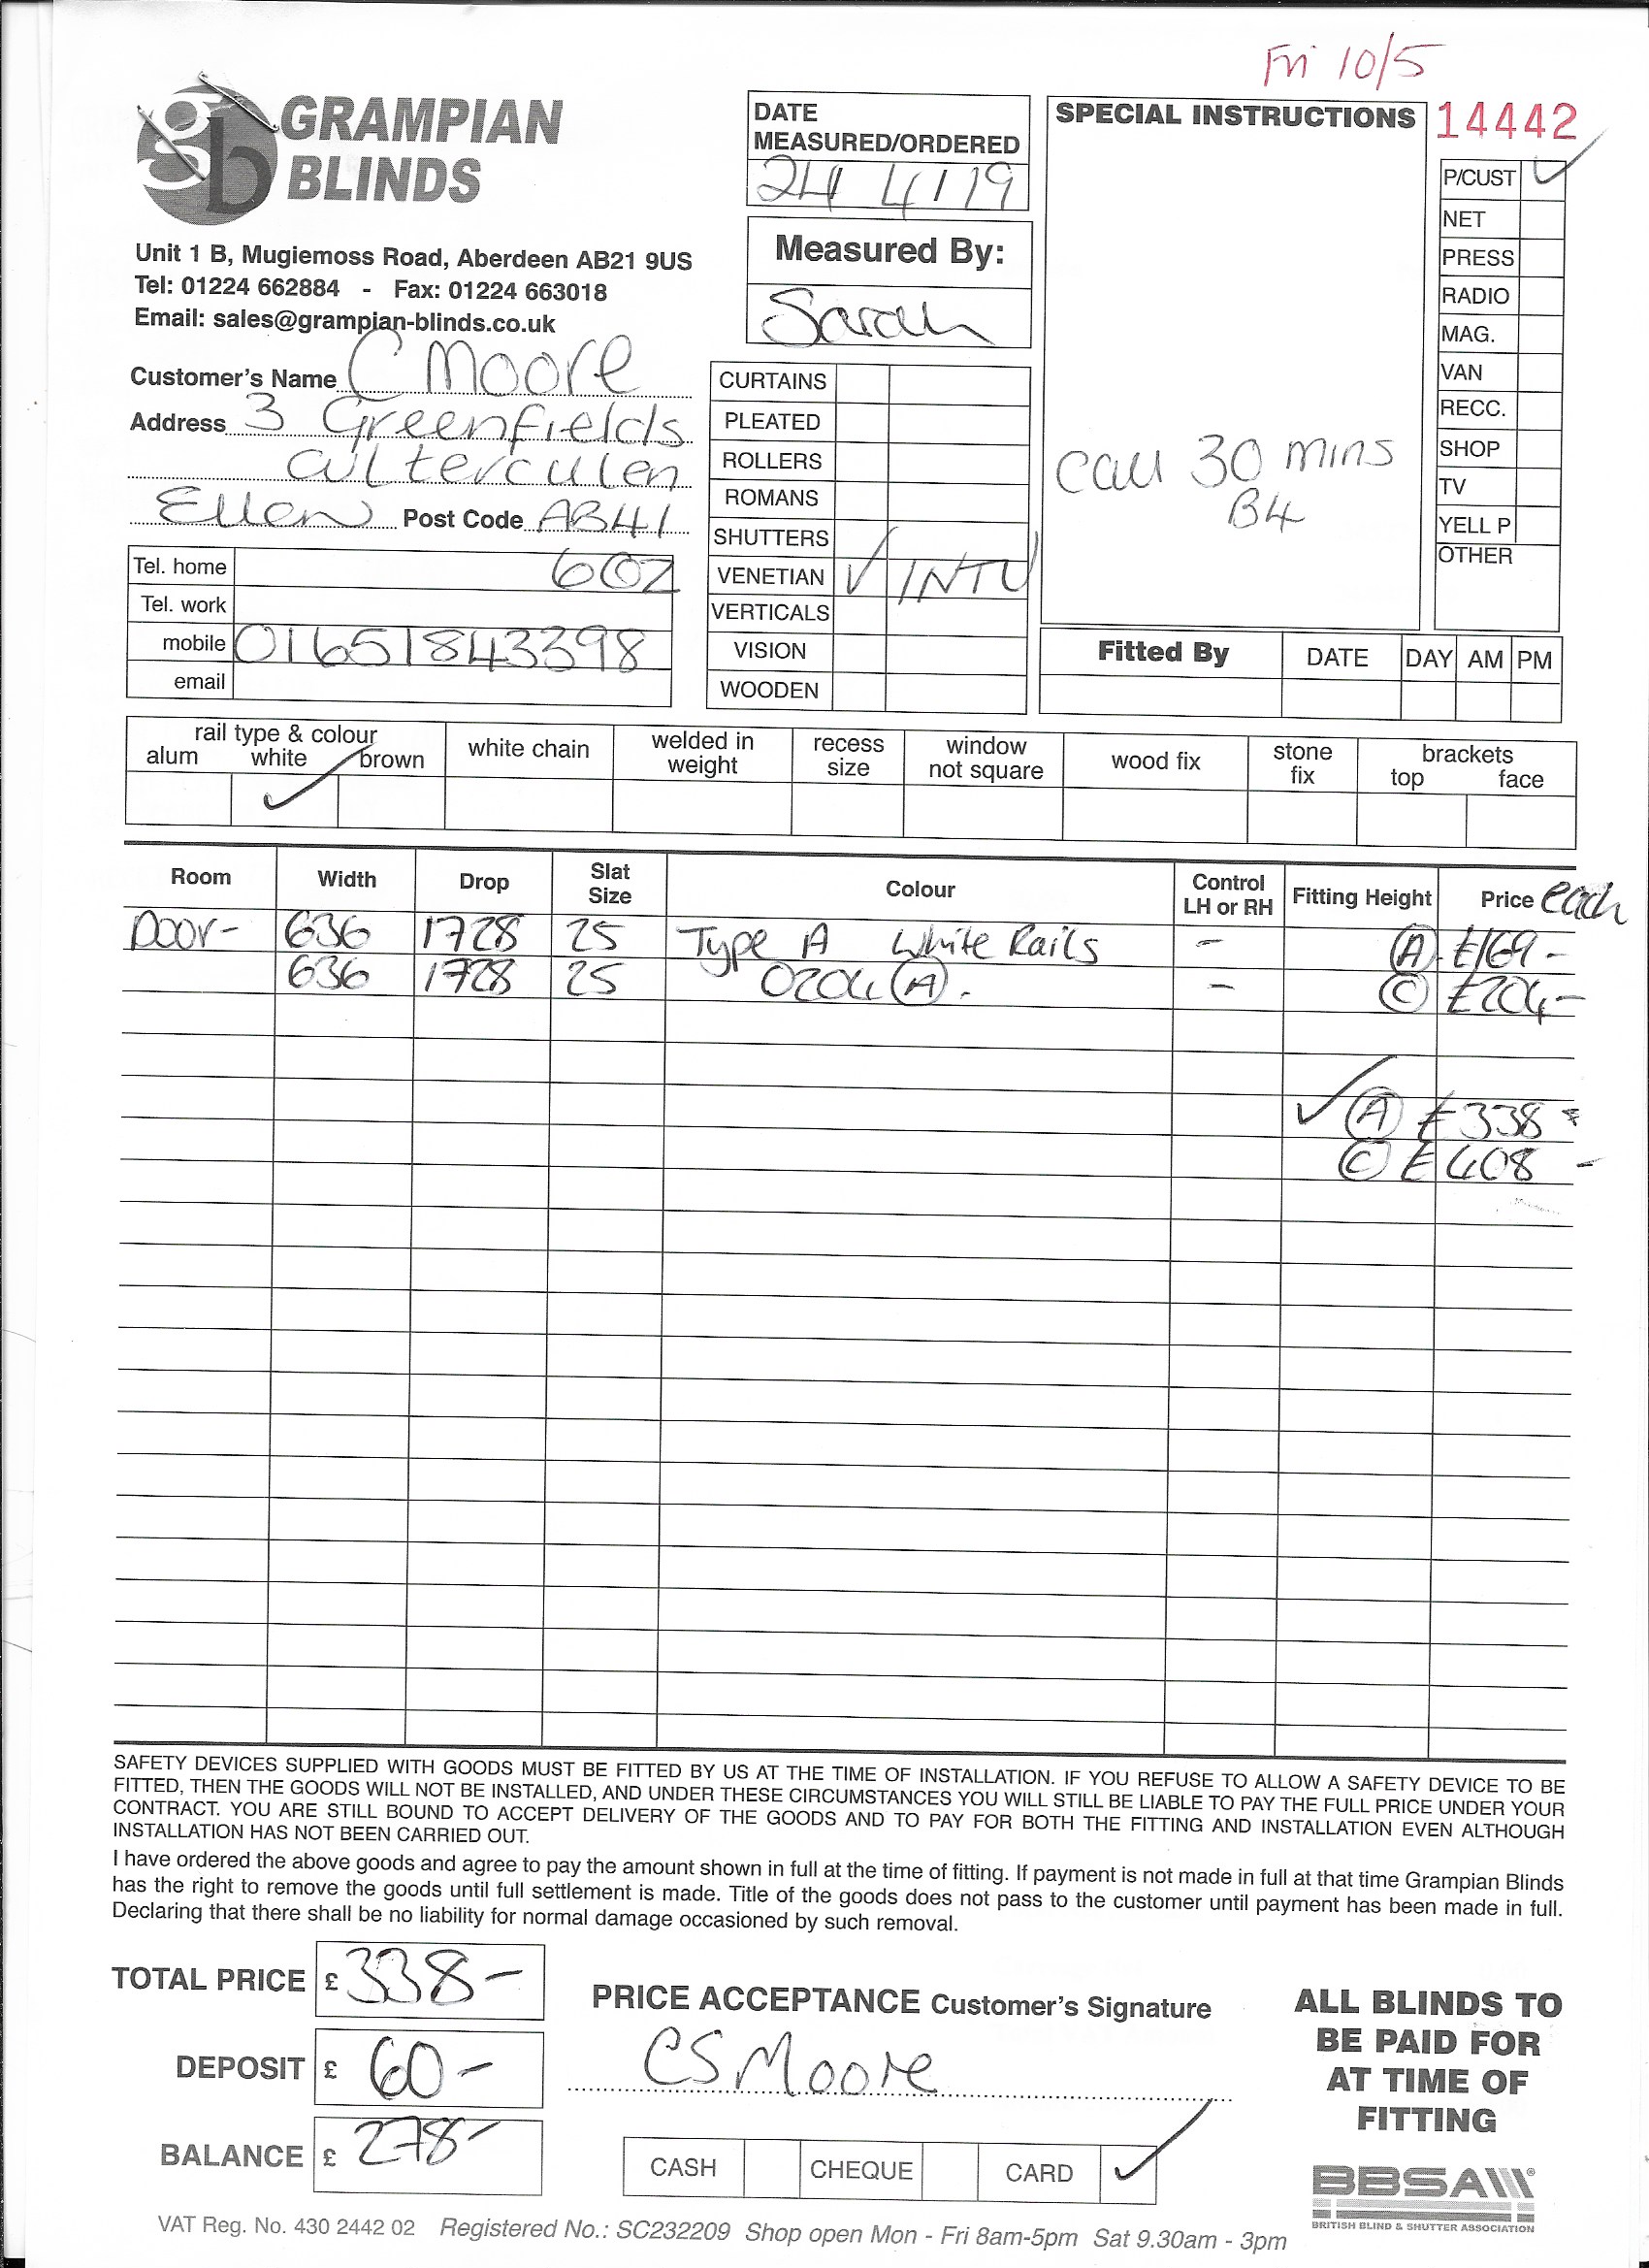 Fri 10/5
GRAMPIAN
BLINDS
Unit 1 B, Mugiemoss Road, Aberdeen AB21 9US
Tel: 01224 662884 - Fax: 01224 663018
Email: sales@grampian-blinds.co.uk
DATE
MEASURED/ORDERED
24/4/19
Measured By:
Sarah
SPECIAL INSTRUCTIONS
Call 30 mins
B4
14442
P/CUST ✓
NET
PRESS
RADIO
MAG.
VAN
RECC.
SHOP
TV
YELL P
OTHER
Customer's Name C Moore
Address 3 Greenfields
Ellon Post Code AB41
Tel. home
Tel. work
mobile 01651843398
email
CURTAINS
PLEATED
ROLLERS
ROMANS
SHUTTERS
VENETIAN ✓ INTU
VERTICALS
VISION
WOODEN
Fitted By DATE DAY AM PM
rail type & colour
alum white ✓ brown
white chain
welded in weight
recess size
window not square
wood fix
stone fix
brackets
top face
Room Width Drop Slat Size Colour Control LH or RH Fitting Height Price each
Door- 636 1728 25 Type A White Rails - (A) £169-
636 1728 25 0204 (A). - (C) £204-
✓ (A) £338
(C) £408 -
SAFETY DEVICES SUPPLIED WITH GOODS MUST BE FITTED BY US AT THE TIME OF INSTALLATION. IF YOU REFUSE TO ALLOW A SAFETY DEVICE TO BE
FITTED, THEN THE GOODS WILL NOT BE INSTALLED, AND UNDER THESE CIRCUMSTANCES YOU WILL STILL BE LIABLE TO PAY THE FULL PRICE UNDER YOUR
CONTRACT. YOU ARE STILL BOUND TO ACCEPT DELIVERY OF THE GOODS AND TO PAY FOR BOTH THE FITTING AND INSTALLATION EVEN ALTHOUGH
INSTALLATION HAS NOT BEEN CARRIED OUT.
I have ordered the above goods and agree to pay the amount shown in full at the time of fitting. If payment is not made in full at that time Grampian Blinds
has the right to remove the goods until full settlement is made. Title of the goods does not pass to the customer until payment has been made in full.
Declaring that there shall be no liability for normal damage occasioned by such removal.
TOTAL PRICE £ 338-
DEPOSIT £ 60-
BALANCE £ 278-
PRICE ACCEPTANCE Customer's Signature
CS Moore
CASH CHEQUE CARD ✓
ALL BLINDS TO
BE PAID FOR
AT TIME OF
FITTING
BBSA
BRITISH BLIND & SHUTTER ASSOCIATION
VAT Reg. No. 430 2442 02 Registered No.: SC232209 Shop open Mon - Fri 8am-5pm Sat 9.30am - 3pm